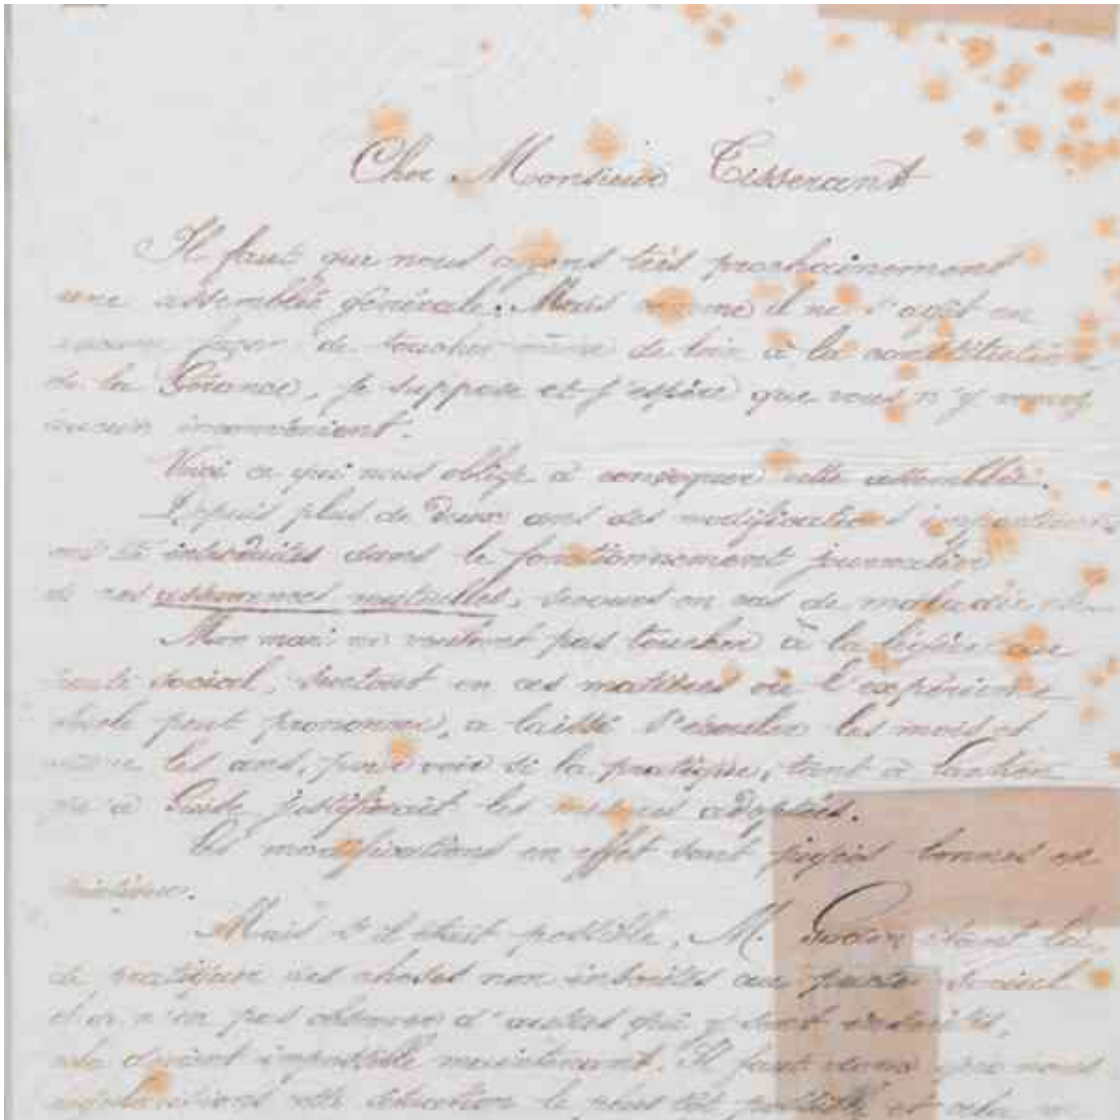 Cher Monsieur Tisserant
Il faut que nous ayons très prochainement
une assemblée générale. Mais comme il ne s'agit en
aucune façon de toucher même de loin à la constitution
de la Gérance, je suppose et j'espère que vous n'y verrez
aucun inconvénient.
Voici ce qui nous oblige à convoquer cette assemblée.
Depuis plus de deux ans des modifications importantes
ont été introduites dans le fonctionnement journalier
de nos assurances mutuelles, secours en cas de maladie etc.
Mon mari ne voulant pas toucher à la légère au
pacte social, surtout en ces matières où l'expérience
seule peut prononcer, a laissé s'écouler les mois et
même les ans, pour voir si la pratique, tant à Laeken
qu'à Guise justifierait les mesures adoptées.
Les modifications en effet sont jugées bonnes en
Mais s'il était possible, M. Godin étant là,
de pratiquer des choses non inscrites au pacte social
et de n'en pas observer d'autres qui y sont inscrites,
cela devient impossible maintenant. Il faut donc que nous
cette situation le plus tôt possible et